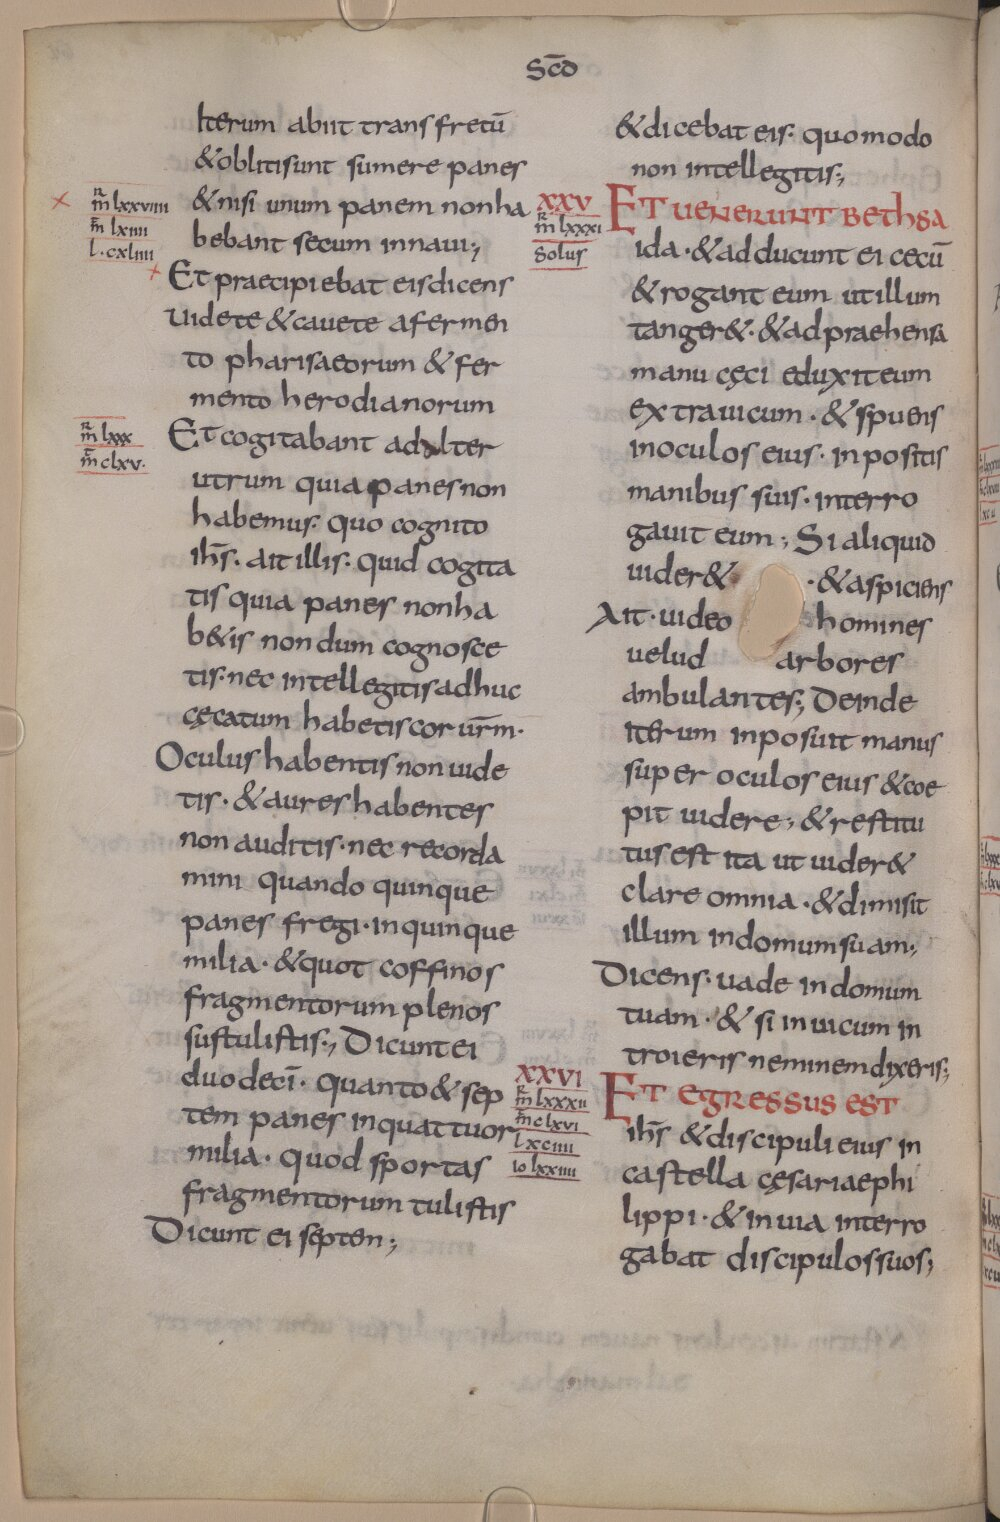 Scd̄
Iterum abiit trans fretū
& obliti sunt sumere panes
m̄ lxxviiii
m̄ lxiiii
l. cxliiii
& nisi unum panem non ha
bebant secum in naui;
Et praecipiebat eis dicens
uidete & cauete a fermen
to pharisaeorum & fer
mento herodianorum
m̄ lxxx
m̄ clxv.
Et cogitabant ad alter
utrum quia panes non
habemus. quo cognito
ihs̄. ait illis. quid cogita
tis quia panes non ha
b&is nondum cognosce
tis. nec intellegitis adhuc
cęcatum habetis cor ur̄m.
Oculus habentis non uide
tis. & aures habentes
non auditis. nec recorda
mini quando quinque
panes fregi. in quinque
milia. & quot coffinos
fragmentorum plenos
sustulistis; Dicunt ei
duodecī. quanto & sep
tem panes in quattuor
milia. quod sportas
fragmentorum tulistis
Dicunt ei septen;
& dicebat eis. quomodo
non intellegitis;
XXV
m̄ lxxxi
Solus
ET UENERUNT BETHSA
ida. & adducunt ei cecū
& rogant eum ut illum
tanger&. & adpraehensa
manu cęci eduxit eum
extra uicum. & spuens
in oculos eius. inpositis
manibus suis. interro
gauit eum; Si aliquid
uider& . & aspiciens
Ait. uideo homines
uelud arbores
ambulantes; Deinde
iterum inposuit manus
super oculos eius & coe
pit uidere; & restitu
tus est ita ut uider&
clare omnia. & dimisit
illum in domum suam;
Dicens. uade in domum
tuam. & si in uicum in
troieris neminem dixeris;
XXVI
m̄ lxxxii
m̄ clxvi
lxciiii
io lxxiiii
ET EGRESSUS EST
ihs̄ & discipuli eius in
castella cęsariae phi
lippi. & in uia interro
gabat discipulos suos;